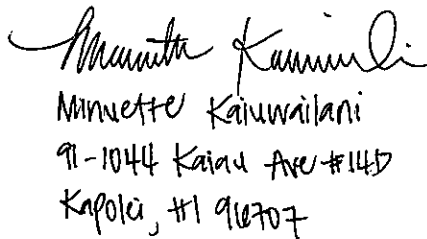 Minuette Kaiuwailani
91-1044 Kaiau Ave #14D
Kapolei, HI 96707